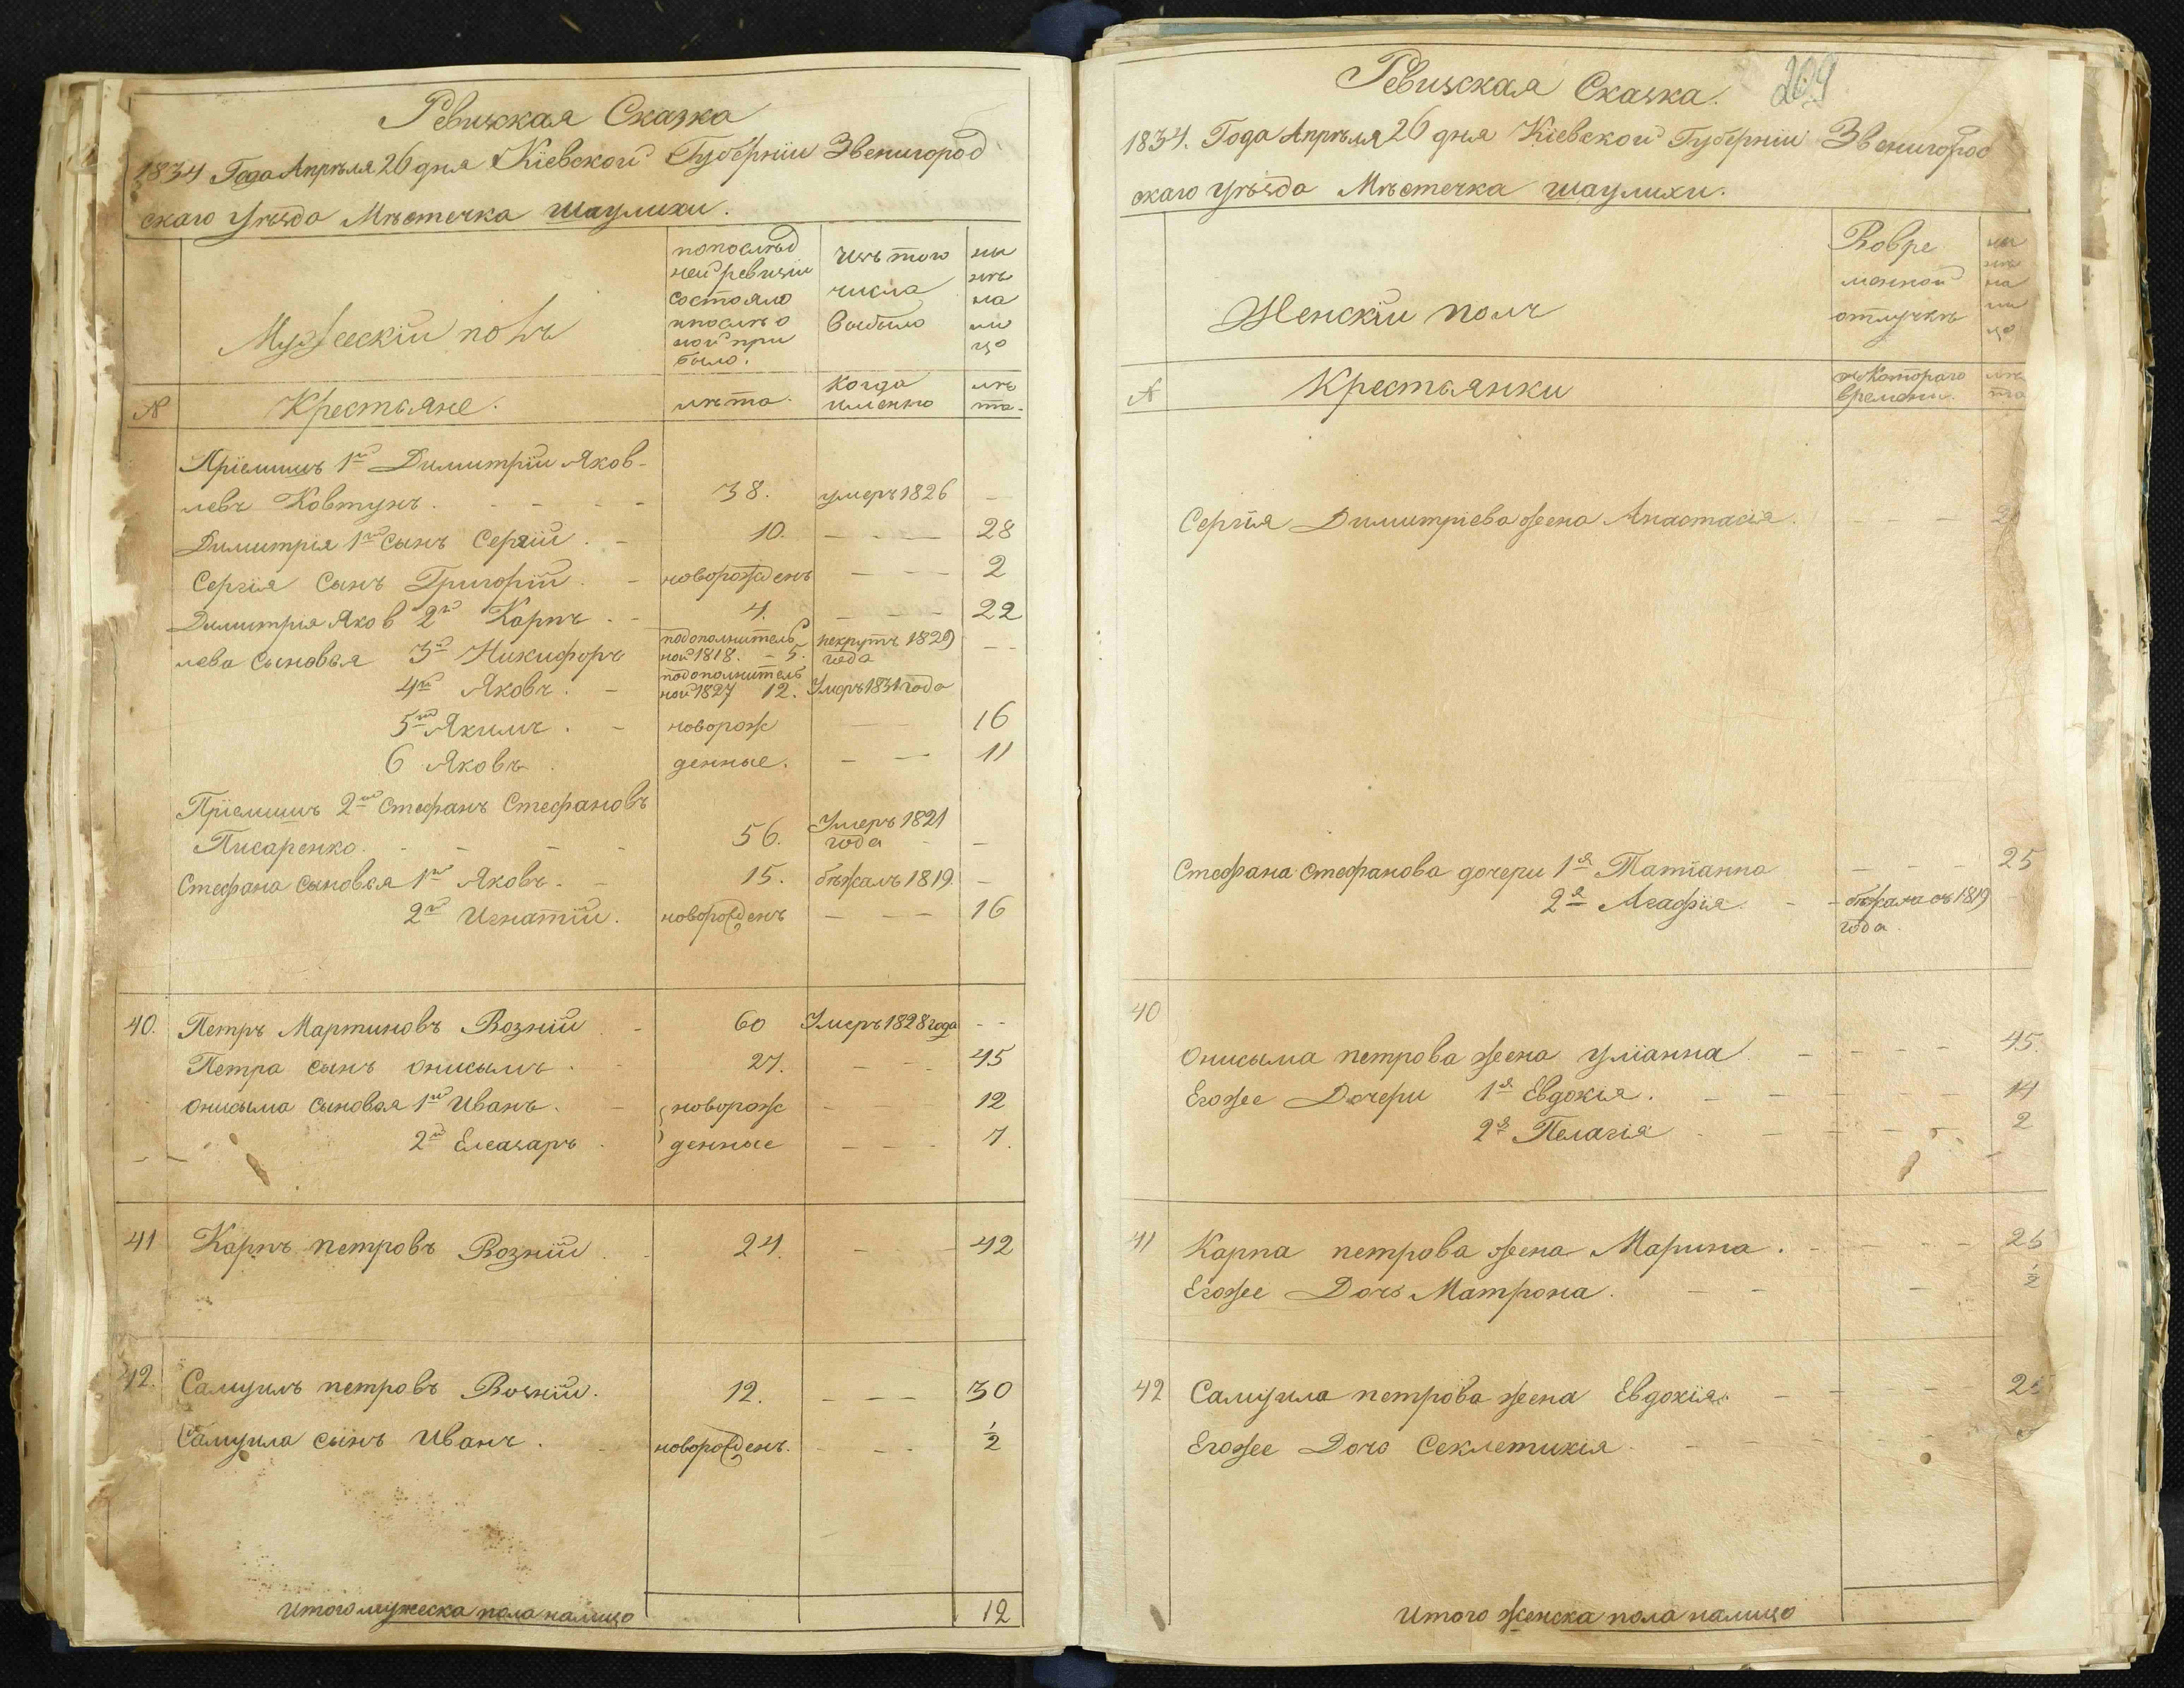 Ревизская Сказка
1834 Года Апреля 26 дня Кіевской Губерніи Звенигород
скаго Уѣзда Мѣстечка Шаулихи.
Мужескій полъ
попослѣд
ней ревизіи
состояло
ипослѣ о
ной при
было.
Изъ того
числа
выбыло
ны
нѣ
на
ли
цо
№
Крестьяне.
лѣта.
Когда
именно
лѣ
та.
Пріемишъ 1й Димитрій Яков-
левъ Ковтунъ. 38. умеръ 1826 —
Димитрія 1й сынъ Сергій. 10. — 28
Сергія Сынъ Григорій. новорожденъ — 2
Димитрія Яков 2й Карпъ 4. — 22
лева сыновья 3й Никифоръ подополнитель
ной 1818. - 5. некрутъ 1829
года — —
4й Яковъ. подополнитель
ной 1827 12. Умеръ 1831 года
5й Якимъ. новорож — 16
6 Яковъ. денные. — 11
Пріемишъ 2й Стефанъ Стефановъ
Писаренко. 56. Умеръ 1821
года —
Стефана сыновья 1й Яковъ. 15. бѣжалъ 1819. —
2й Игнатій. новорожденъ — 16
40. Петръ Мартиновъ Возній 60 Умеръ 1828 года - -
Петра сынъ Онисымъ. 27. — 45
Онисыма сыновья 1й Иванъ. новорож — 12
2й Елеазаръ. денные — 7.
41 Карпъ петровъ Возній. 24. — 42
42. Самуилъ петровъ Возній. 12. — 30
Самуила сынъ Иванъ. новорожденъ. — ½
Итого мужеска пола налицо 12
Ревизская Сказка. 209
1834. Года Апрѣля 26 дня Кіевской Губерніи Звенигород
скаго Уѣзда Мѣстечка Шаулихи.
Женскій полъ
Вовре
менной
отлучкѣ
ны
нѣ
на
ли
цо
№
Крестьянки
съ Котораго
времени.
лѣ
та
Сергія Димитріева жена Анастасія.
Стефана Стефанова дочери 1я Татіанна — 25
2я Агафія - бѣжала съ 1819
года.
40
Онисыма петрова жена Уліанна — 45.
Егоже Дочери 1я Евдокія. — 14
2я Пелагія — 2
41 Карпа петрова жена Марина. — 26
Егоже Дочь Матрона. — ½
42 Самуила петрова жена Евдокія. —
Егоже Дочь Секлетикія. —
Итого женска пола налицо